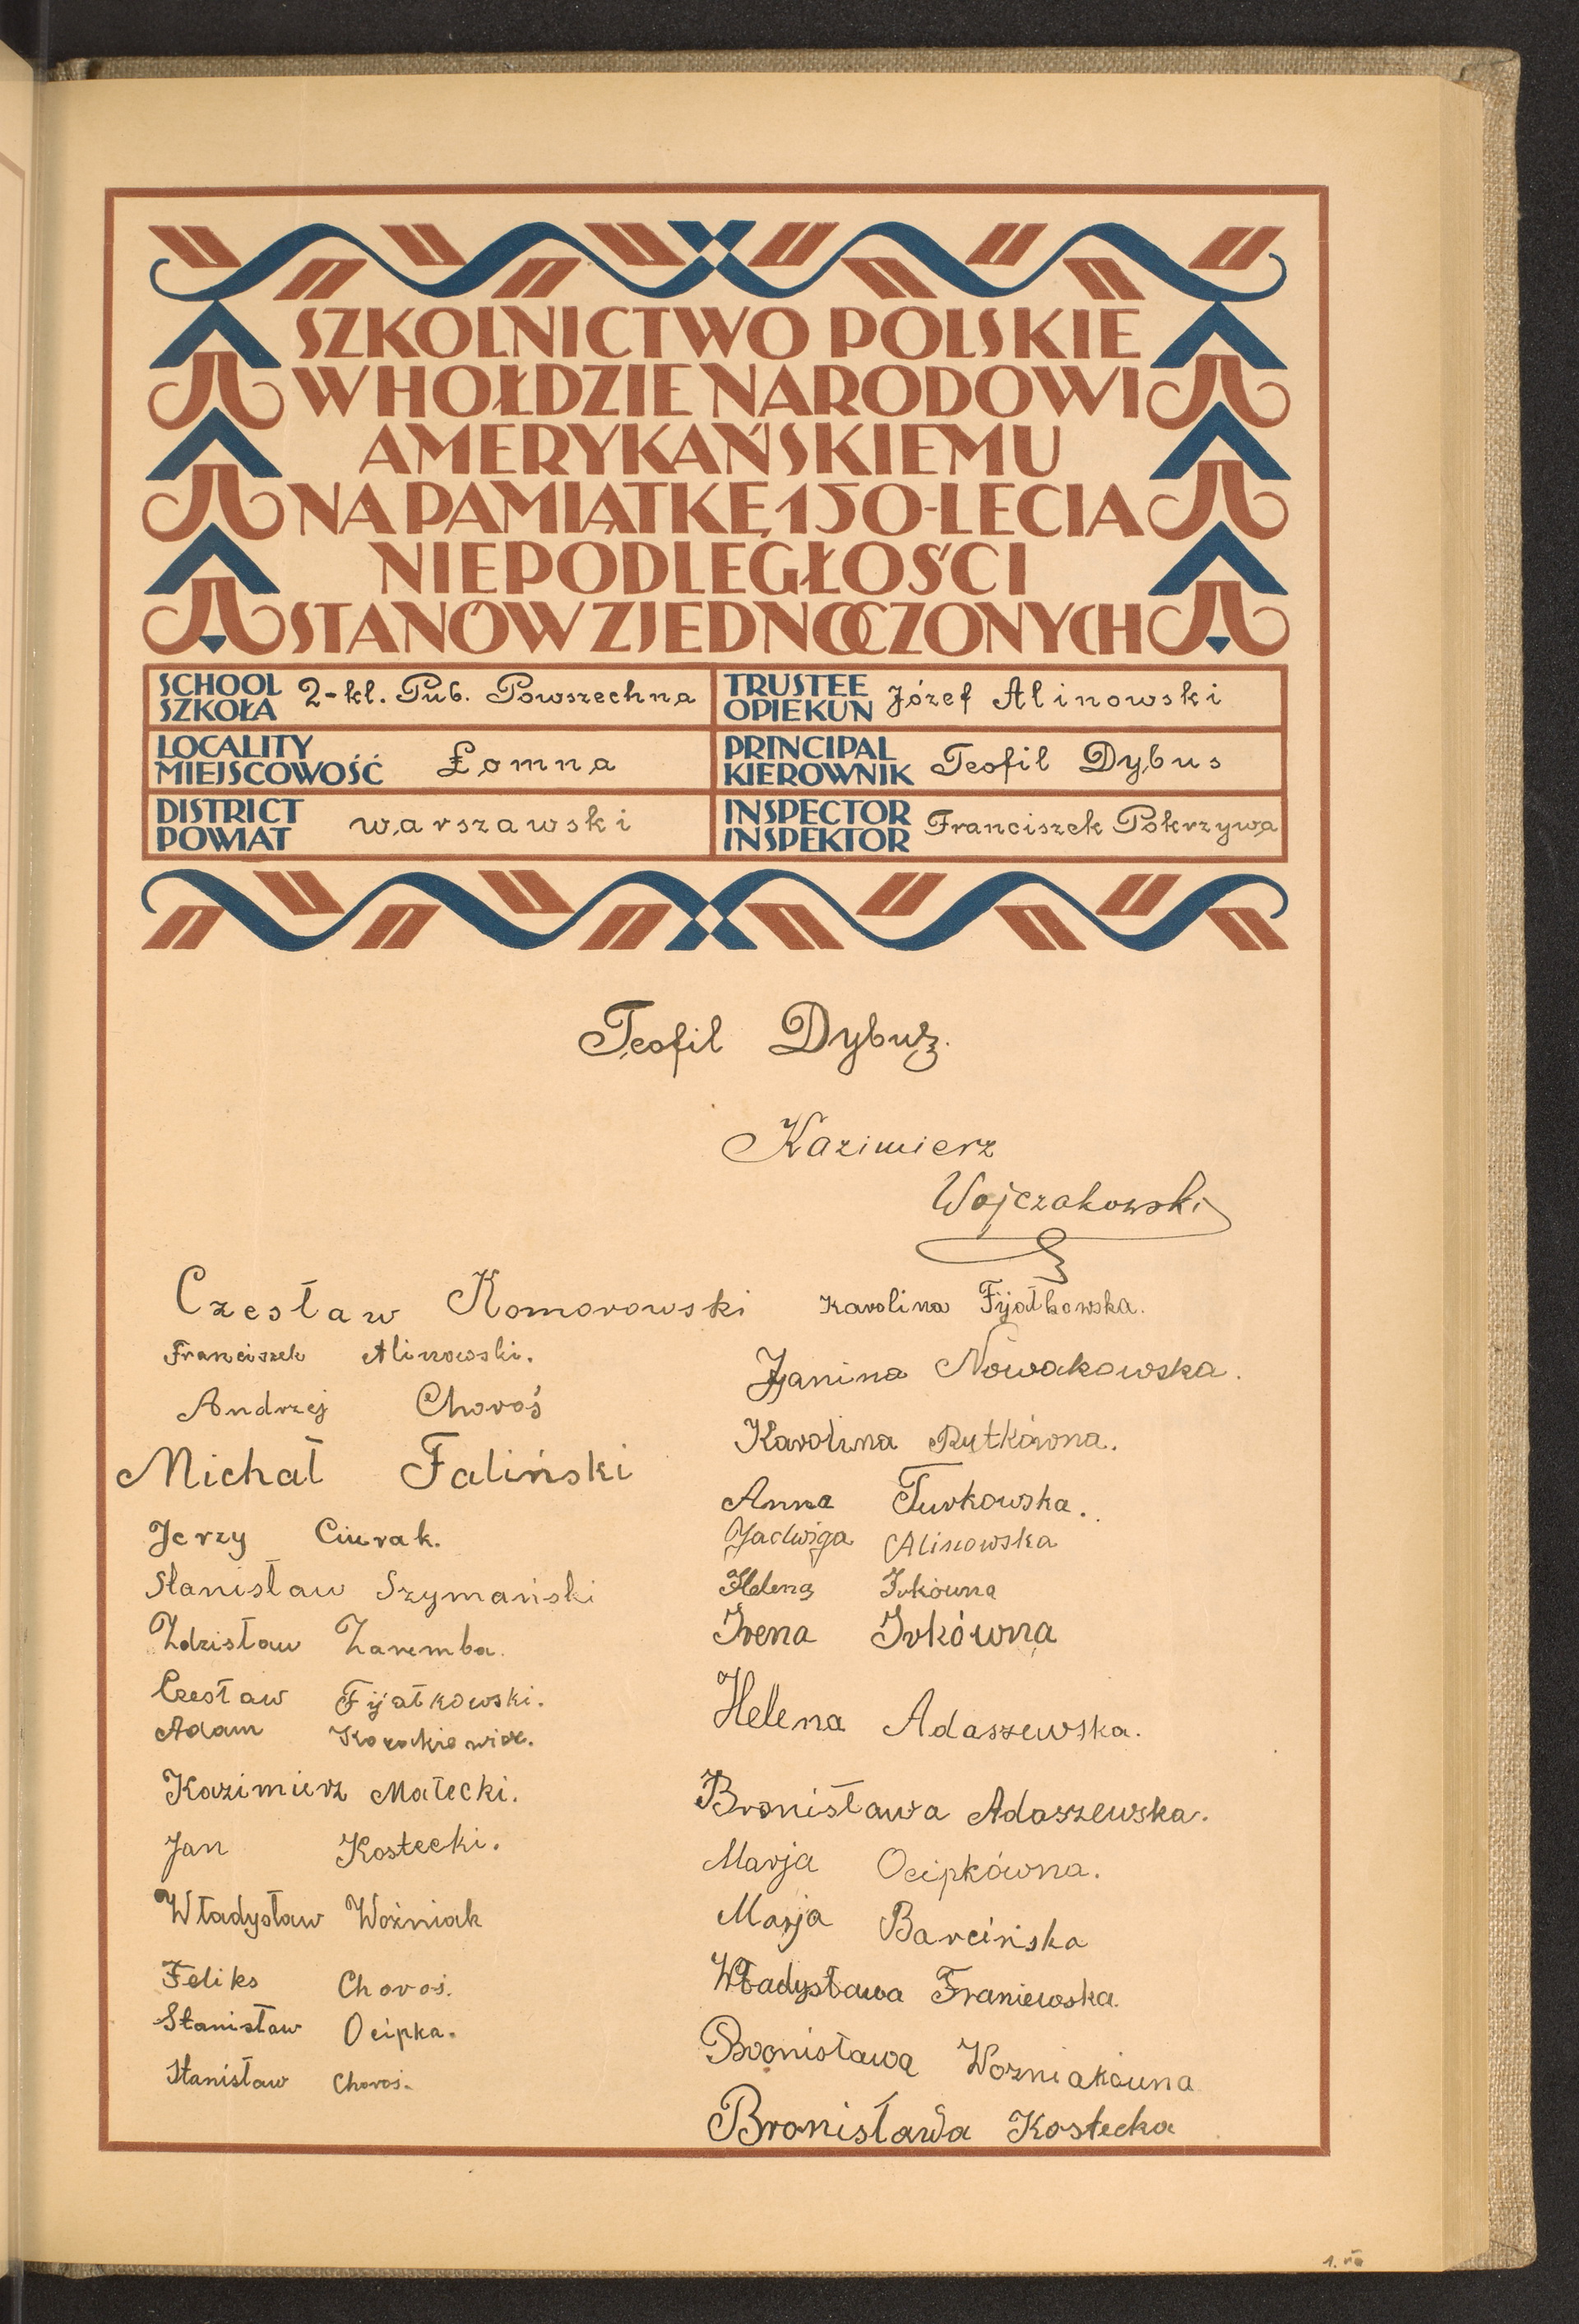 SZKOLNICTWO POLSKIE
W HOŁDZIE NARODOWI
AMERYKAŃSKIEMU
NA PAMIĄTKĘ 150-LECIA
NIEPODLEGŁOŚCI
STANÓW ZJEDNOCZONYCH
SCHOOL
SZKOŁA 2-kl. Pub. Powszechna
TRUSTEE
OPIEKUN Józef Alinowski
LOCALITY
MIEJSCOWOŚĆ Łomna
PRINCIPAL
KIEROWNIK Teofil Dybus
DISTRICT
POWIAT warszawski
INSPECTOR
INSPEKTOR Franciszek Pokrzywa
Teofil Dybus.
Kazimierz
Wojczakowski
Czesław Komorowski
Franciszek Alinowski.
Andrzej Choroś
Michał Faliński
Jerzy Ciurak.
Stanisław Szymański
Zdzisław Zaremba.
Czesław Fijałkowski.
Adam
Kazimierz Małecki.
Jan Kostecki.
Władysław Woźniak
Feliks Choroś.
Stanisław Ocipka.
Stanisław Choroś.
Karolina Fijałkowska.
Janina Nowakowska.
Karolina Rutkówna.
Anna Turkowska.
Jadwiga Alinowska
Helena Irkówna
Irena Irkówna
Helena Adaszewska.
Bronisława Adaszewska.
Marja Ocipkówna.
Marja Barcińska
Władysława Franiewska.
Bronisława Wozniakówna
Bronisława Kostecka